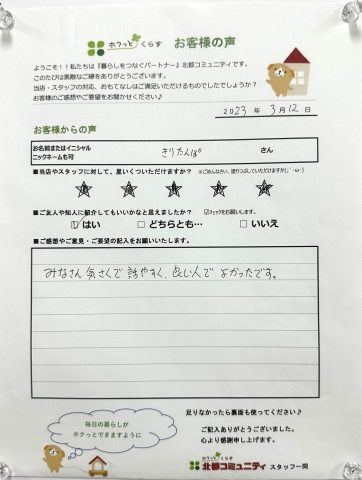 ホクっとくらす お客様の声
ようこそ!!私たちは『暮らしをつなぐパートナー』北都コミュニティです。
このたびは素敵なご縁をありがとうございます。
当店・スタッフの対応、おもてなしはご満足いただけるものでしたでしょうか?
お客様のご感想やご要望をお聞かせください♪
2023 年 3 月 12 日
お客様からの声
お名前またはイニシャル
ニックネームも可
きりたんぽ さん
■当店やスタッフに対して、星いくつついただけますか? ※ごめんなさい、塗りつぶしていただけますか(;´･ω･)
■ご友人や知人に紹介してもいいかなと思えましたか? ☑チェックをお願いします。
☑はい □どちらとも… □いいえ
■ご感想やご意見・ご要望の記入をお願いいたします。
みなさん気さくで話やすく、良い人でよかったです。
足りなかったら裏面も使ってください♪
毎日の暮らしが
ホクっとできますように
ご記入ありがとうございました。
心より感謝申し上げます。
ホクっとくらす
北都コミュニティ スタッフ一同